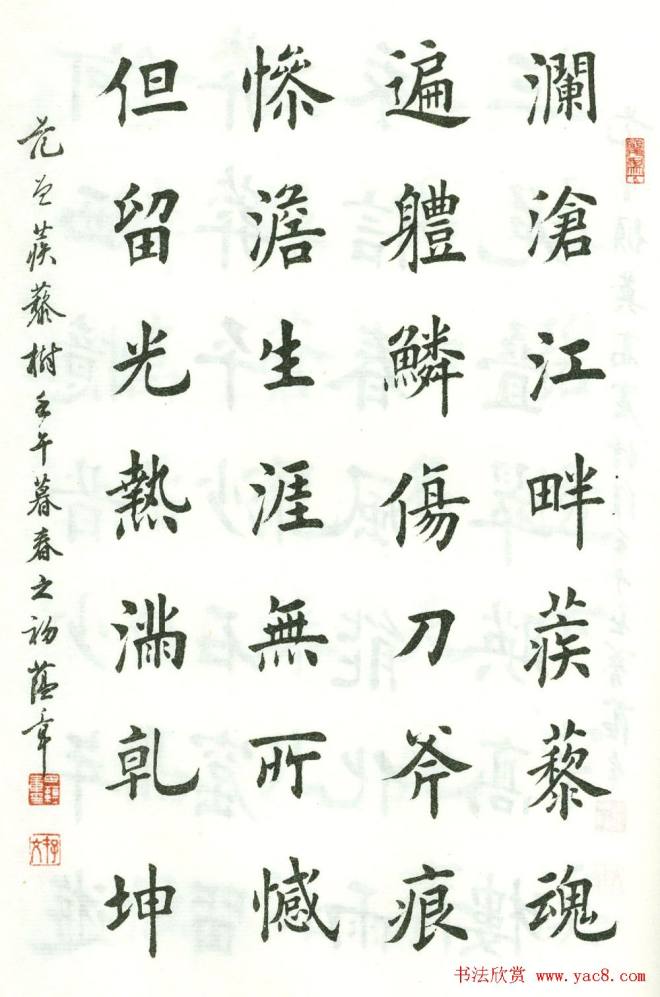 瀾滄江畔蒺藜魂
遍軆鱗傷刀斧痕
慘澹生涯無所憾
但留光熱滿乾坤
范曾蒺藜樹壬午暮春之初蔭章
书法欣赏 www.yac8.com